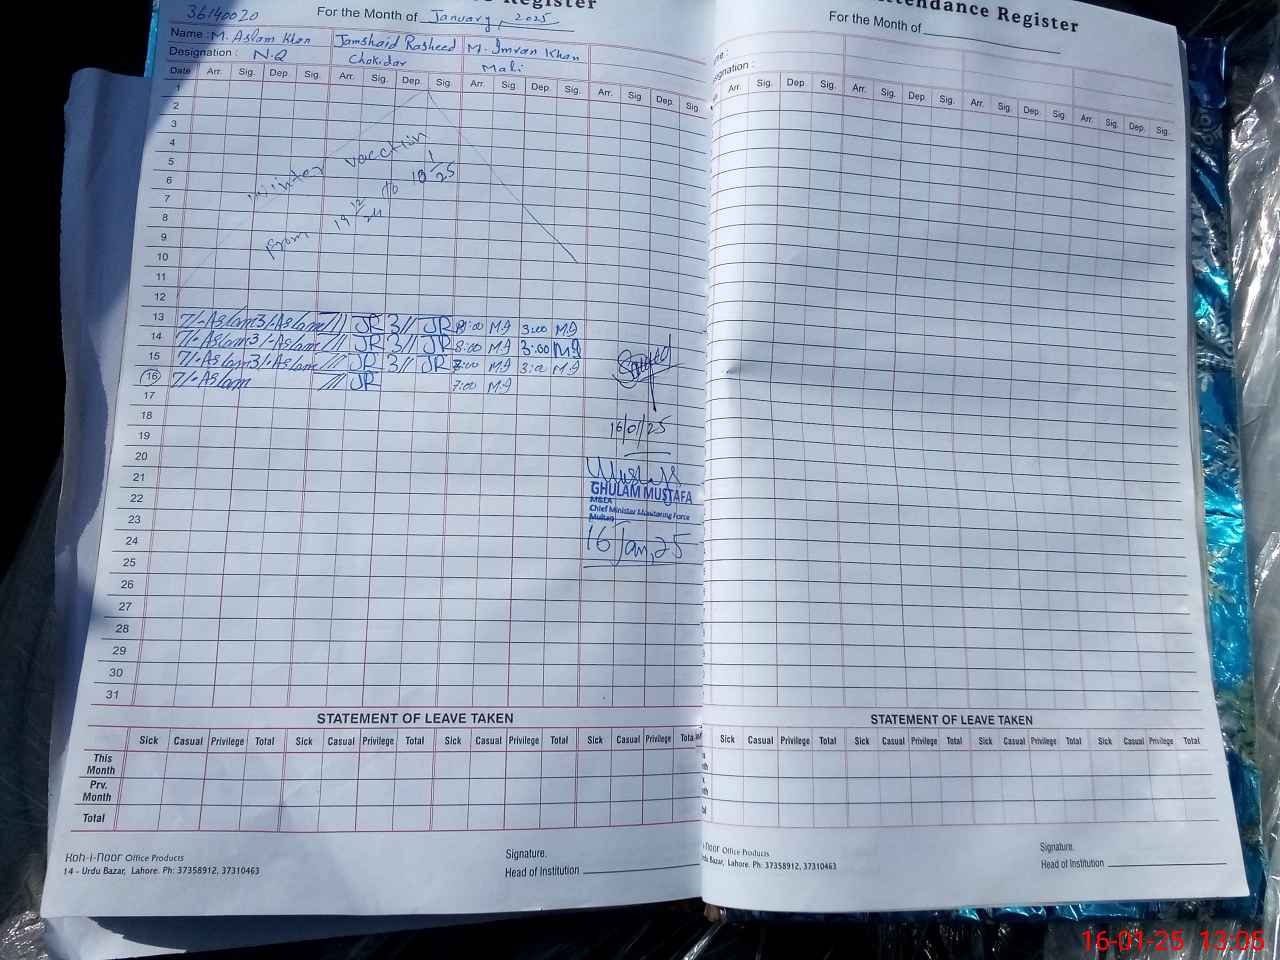 36140020
For the Month of January, 2025
Name: M. Aslam Khan Jamshaid Rasheed M. Imran Khan
Designation: N.Q Chokidar Mali
Date Arr. Sig. Dep. Sig. Arr. Sig. Dep. Sig. Arr. Sig. Dep. Sig. Arr. Sig. Dep. Sig.
1
2
3
4
5
6
7
8
9
10
11
12
winter vacction
From 19 12/24 to 10 1/25
13 7/- Aslam 3/- Aslam 7// JR 3// JR 8:00 M.I 3:00 M.I
14 7/- Aslam 3/- Aslam 7// JR 3// JR 8:00 M.I 3:00 M.I
15 7/- Aslam 3/- Aslam 7// JR 3// JR 8:00 M.I 3:00 M.I
16 7/- Aslam 7// JR 7:00 M.I
17
18
19
20
21
22
23
24
25
26
27
28
29
30
31
16/01/25
GHULAM MUSTAFA
MEEA
Chief Minister Monitoring Force
Multan
16 Jan, 25
STATEMENT OF LEAVE TAKEN
Sick Casual Privilege Total Sick Casual Privilege Total Sick Casual Privilege Total Sick Casual Privilege Total
This Month
Prv. Month
Total
Koh-i-Noor Office Products
14 - Urdu Bazar, Lahore. Ph: 37358912, 37310463
Signature.
Head of Institution
Attendance Register
For the Month of
Arr. Sig. Dep. Sig. Arr. Sig. Dep. Sig. Arr. Sig. Dep. Sig. Arr. Sig. Dep. Sig.
STATEMENT OF LEAVE TAKEN
Sick Casual Privilege Total Sick Casual Privilege Total Sick Casual Privilege Total Sick Casual Privilege Total
-Noor Office Products
Urdu Bazar, Lahore. Ph: 37358912, 37310463
Signature.
Head of Institution
16-01-25 13:05